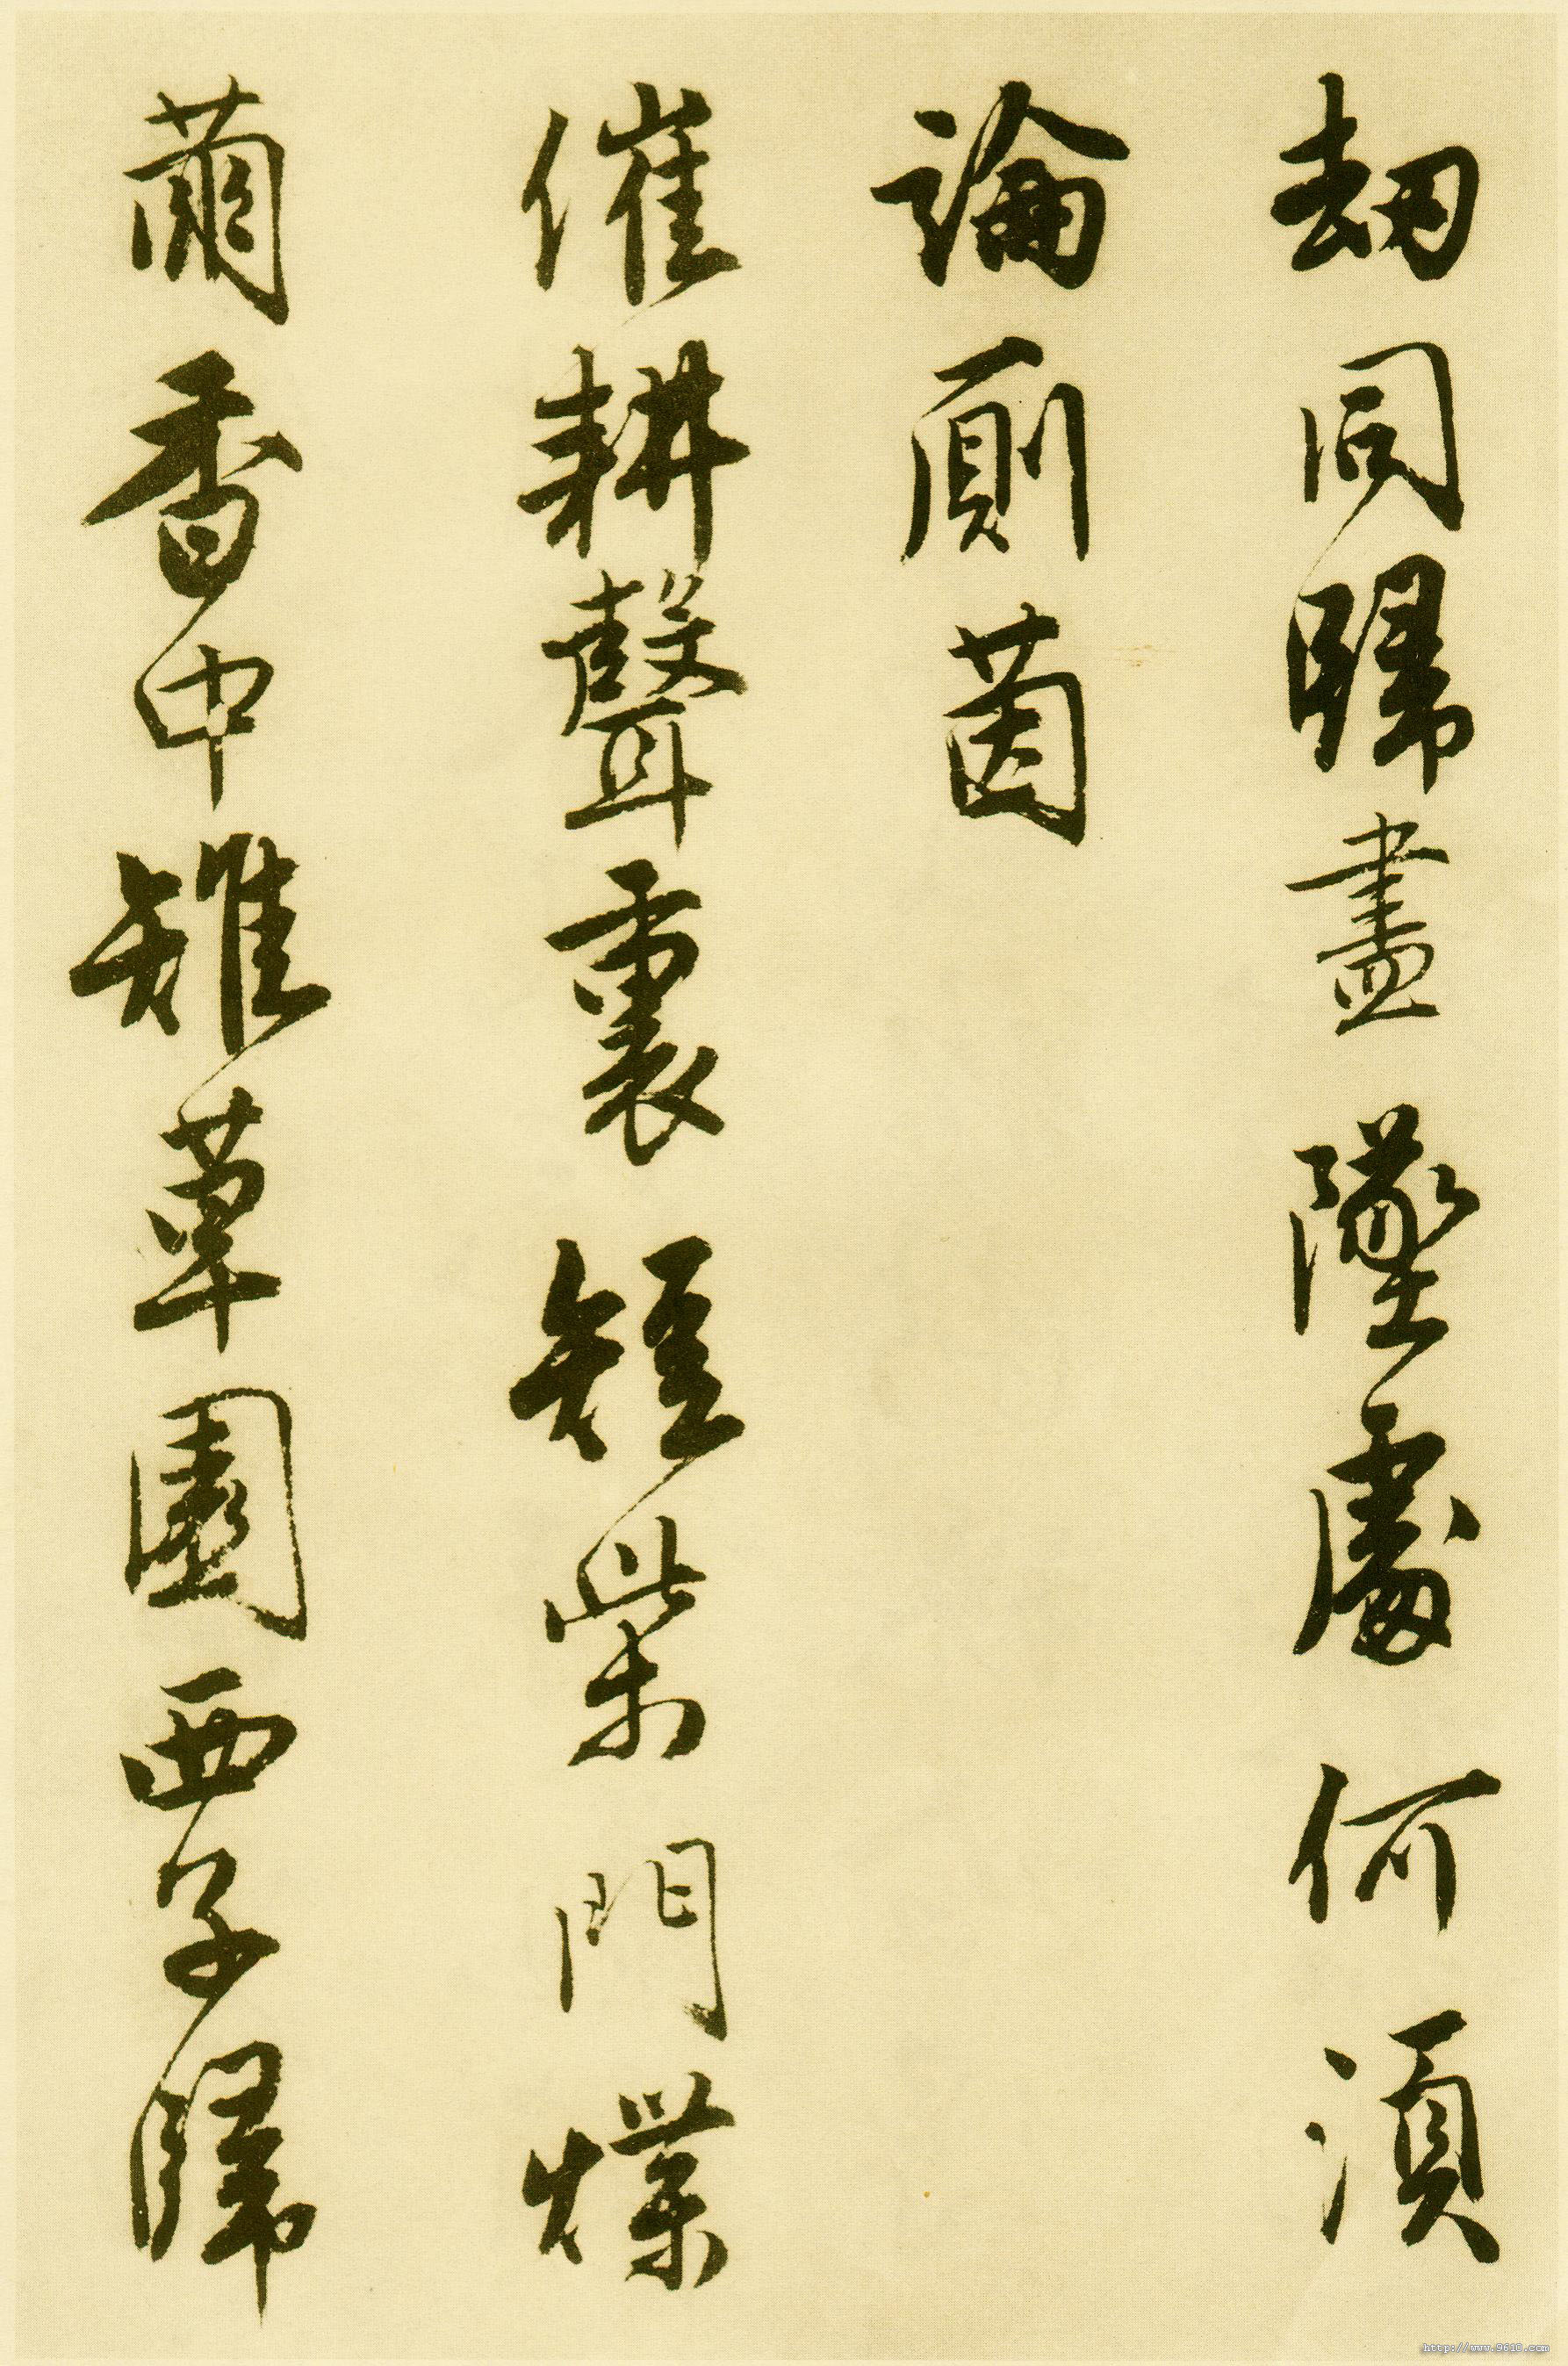 劫同歸盡墜處何須
論廁茵
催耕聲裏短柴門煠
繭香中雉草園西子歸
http://www.9610.com